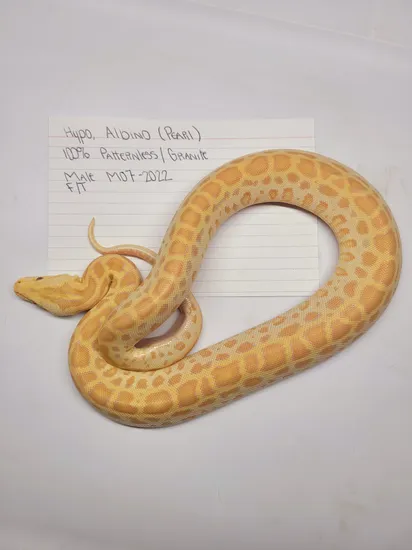 Hypo, Albino (Pearl)
100% Patternless/Granite
Male M07-2022
F/T